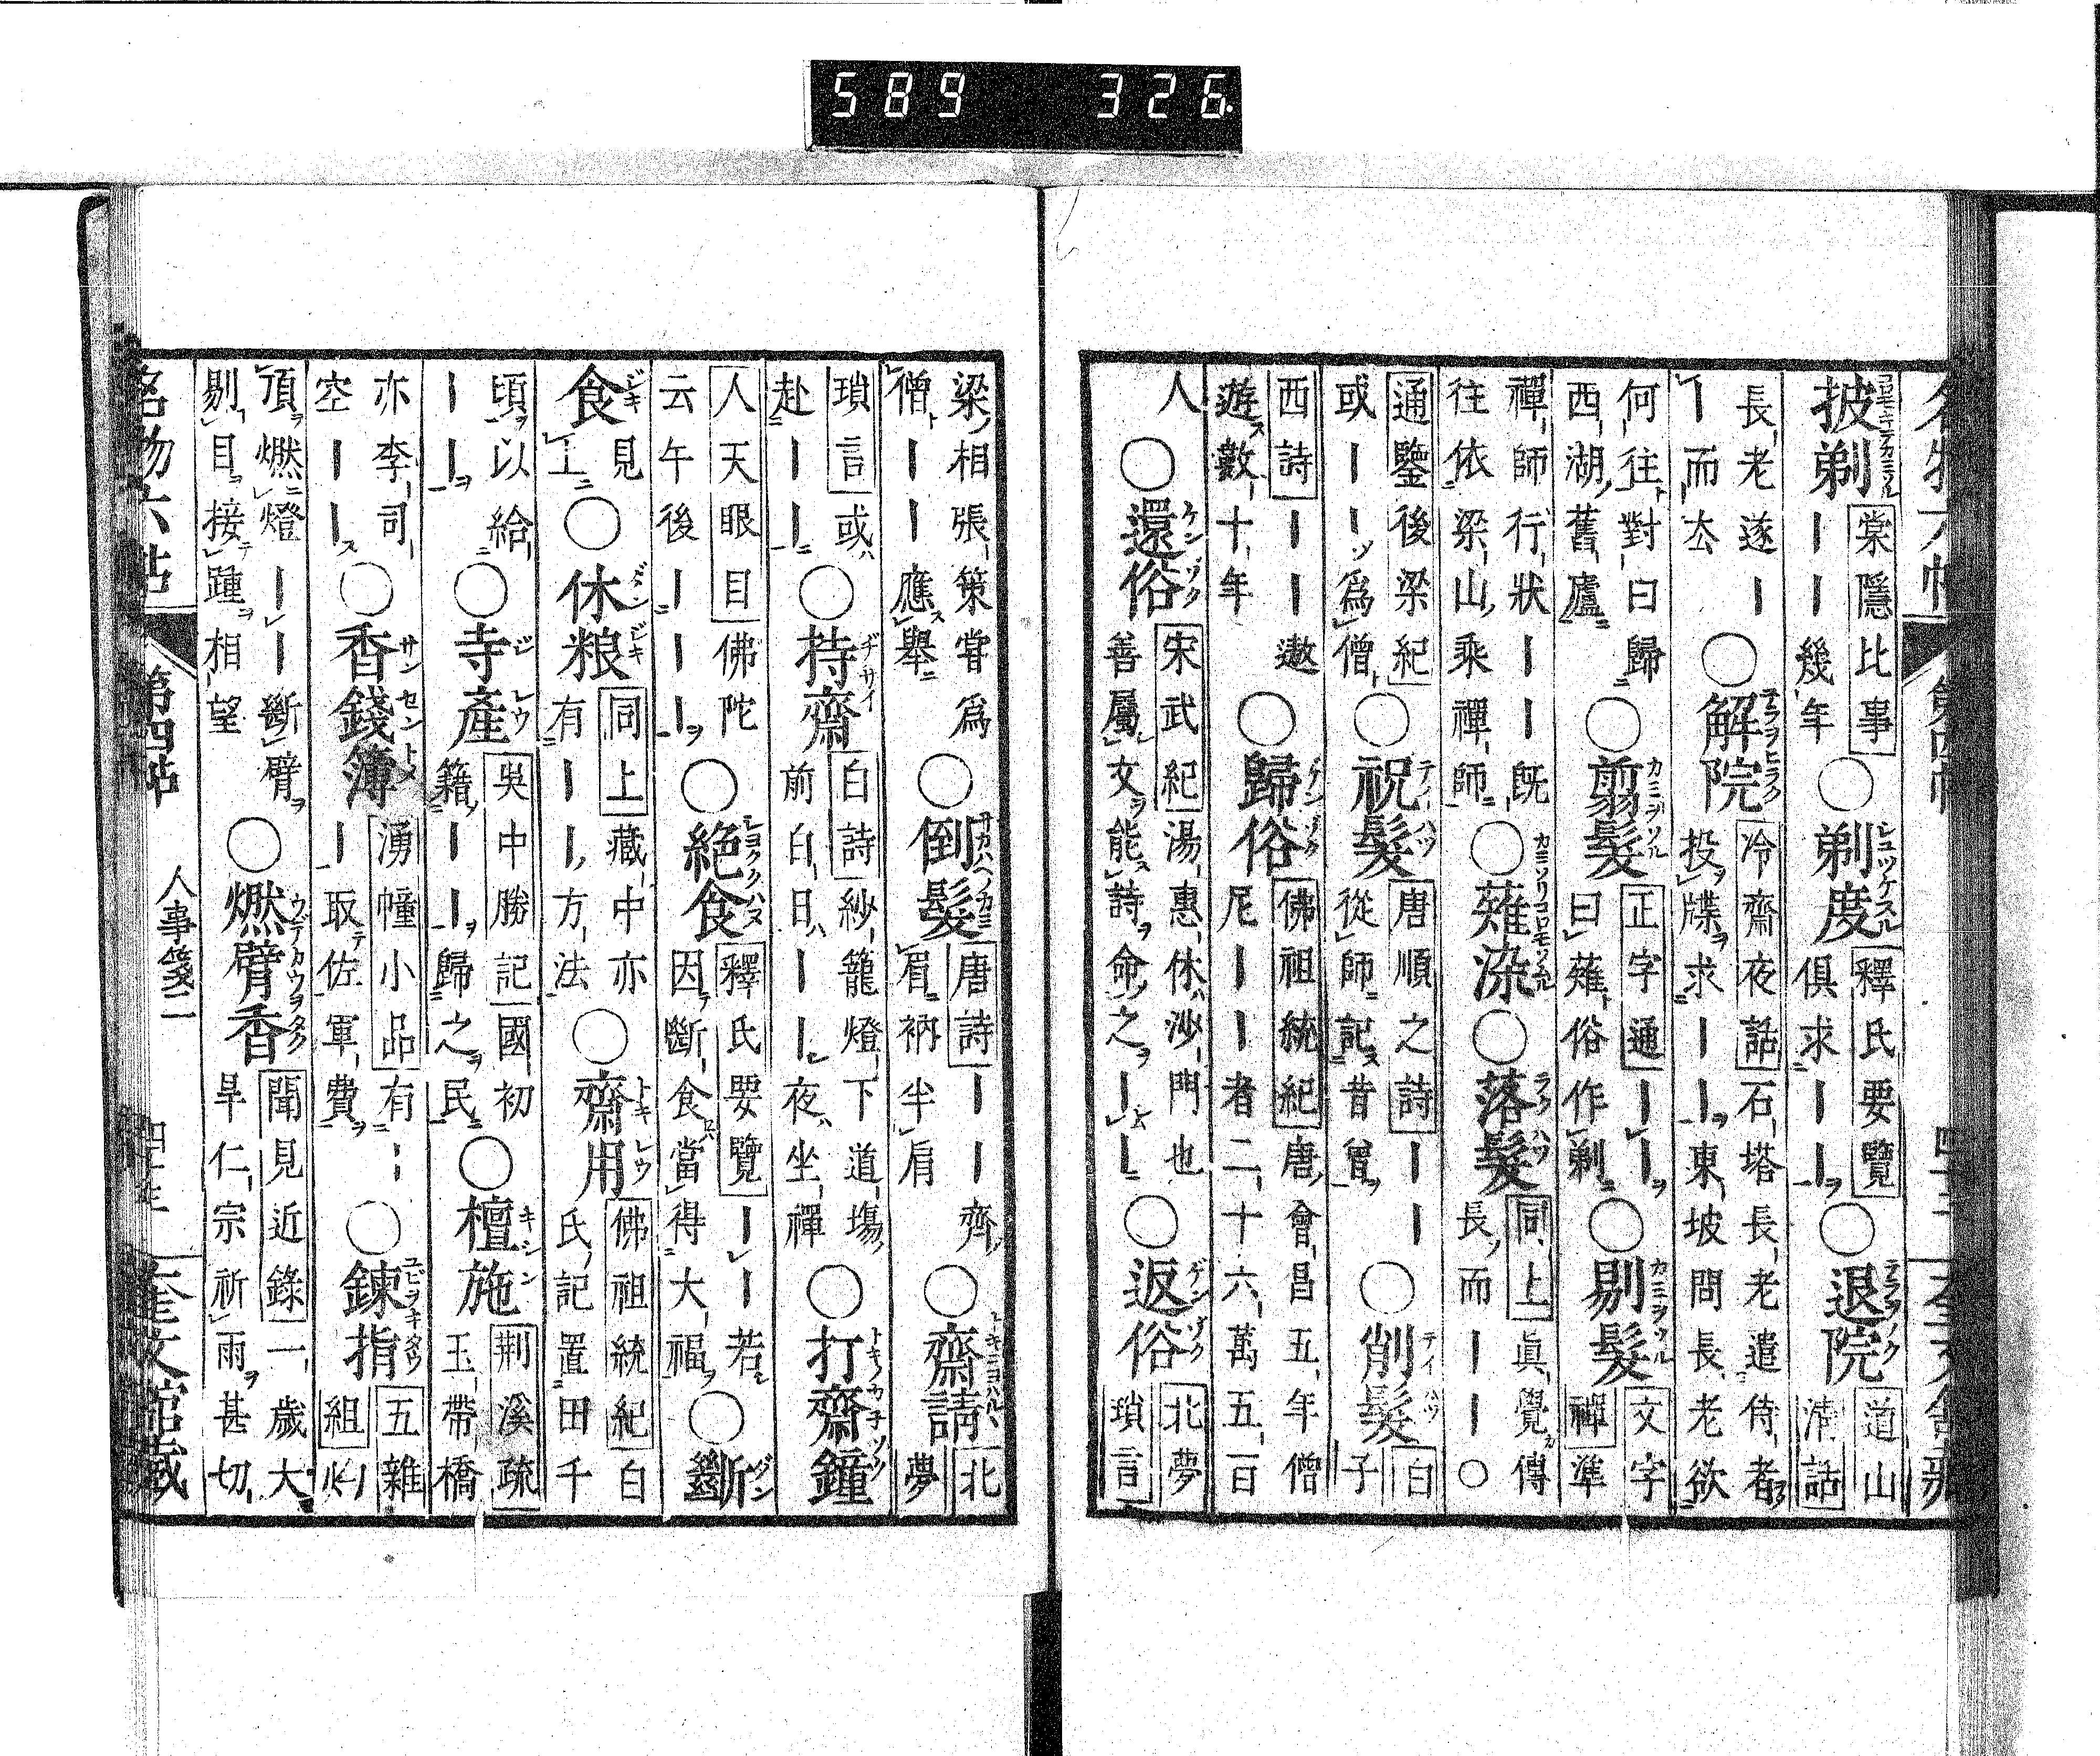 589 326
披剃 棠隱比事 ｜｜幾年 ○ 剃度 釋氏要覽 俱求｜｜ ○ 退院 道山清話
長老遂｜｜而厺 ○ 解院 冷齋夜話 石塔長老遣侍者投牒求｜｜東坡問長老欲
何往對曰歸西湖舊廬 ○ 翦髮 正字通 ｜｜曰薙俗作剃 ○ 剔髮 文字禪準
禪師行狀｜｜既往依梁山乘禪師 ○ 薙染 ○ 落髮 同上 眞覺傳長而｜｜○
通鑒後梁紀 或｜｜爲僧 ○ 祝髮 唐順之詩 ｜｜從師記昔曾 ○ 削髮 白子
西詩 ｜｜遨遊數十年 ○ 歸俗 佛祖統紀 唐會昌五年僧尼｜｜者二十六萬五百
人 ○ 還俗 宋武紀 湯惠休沙門也善屬文能詩命之｜｜ ○ 返俗 北夢瑣言
梁相張策嘗爲僧｜｜應舉 ○ 倒髮 唐詩 ｜｜齊眉衲半肩 ○ 齋請 北夢
瑣言 或赴｜｜ ○ 持齋 白詩 紗籠燈下道場前白日｜｜夜坐禪 ○ 打齋鐘
人天眼目 佛陀云午後｜｜｜ ○ 絶食 釋氏要覽 ｜｜若因斷食當得大福 ○ 斷
食 見上 ○ 休粮 同上 藏中亦有｜｜方法 ○ 齋用 佛祖統紀 白氏記置田千
頃以給｜｜ ○ 寺產 吳中勝記 國初籍｜｜歸之民 ○ 檀施 荆溪疏 玉帶橋
亦李司空｜｜ ○ 香錢簿 湧幢小品 有｜｜｜取佐軍費 ○ 鍊指 五雜組
頂燃燈｜｜斷臂剔目接踵相望 ○ 燃臂香 聞見近錄 一歲大旱仁宗祈雨甚切
名物六帖 第四帖 人事箋二 奎文館藏